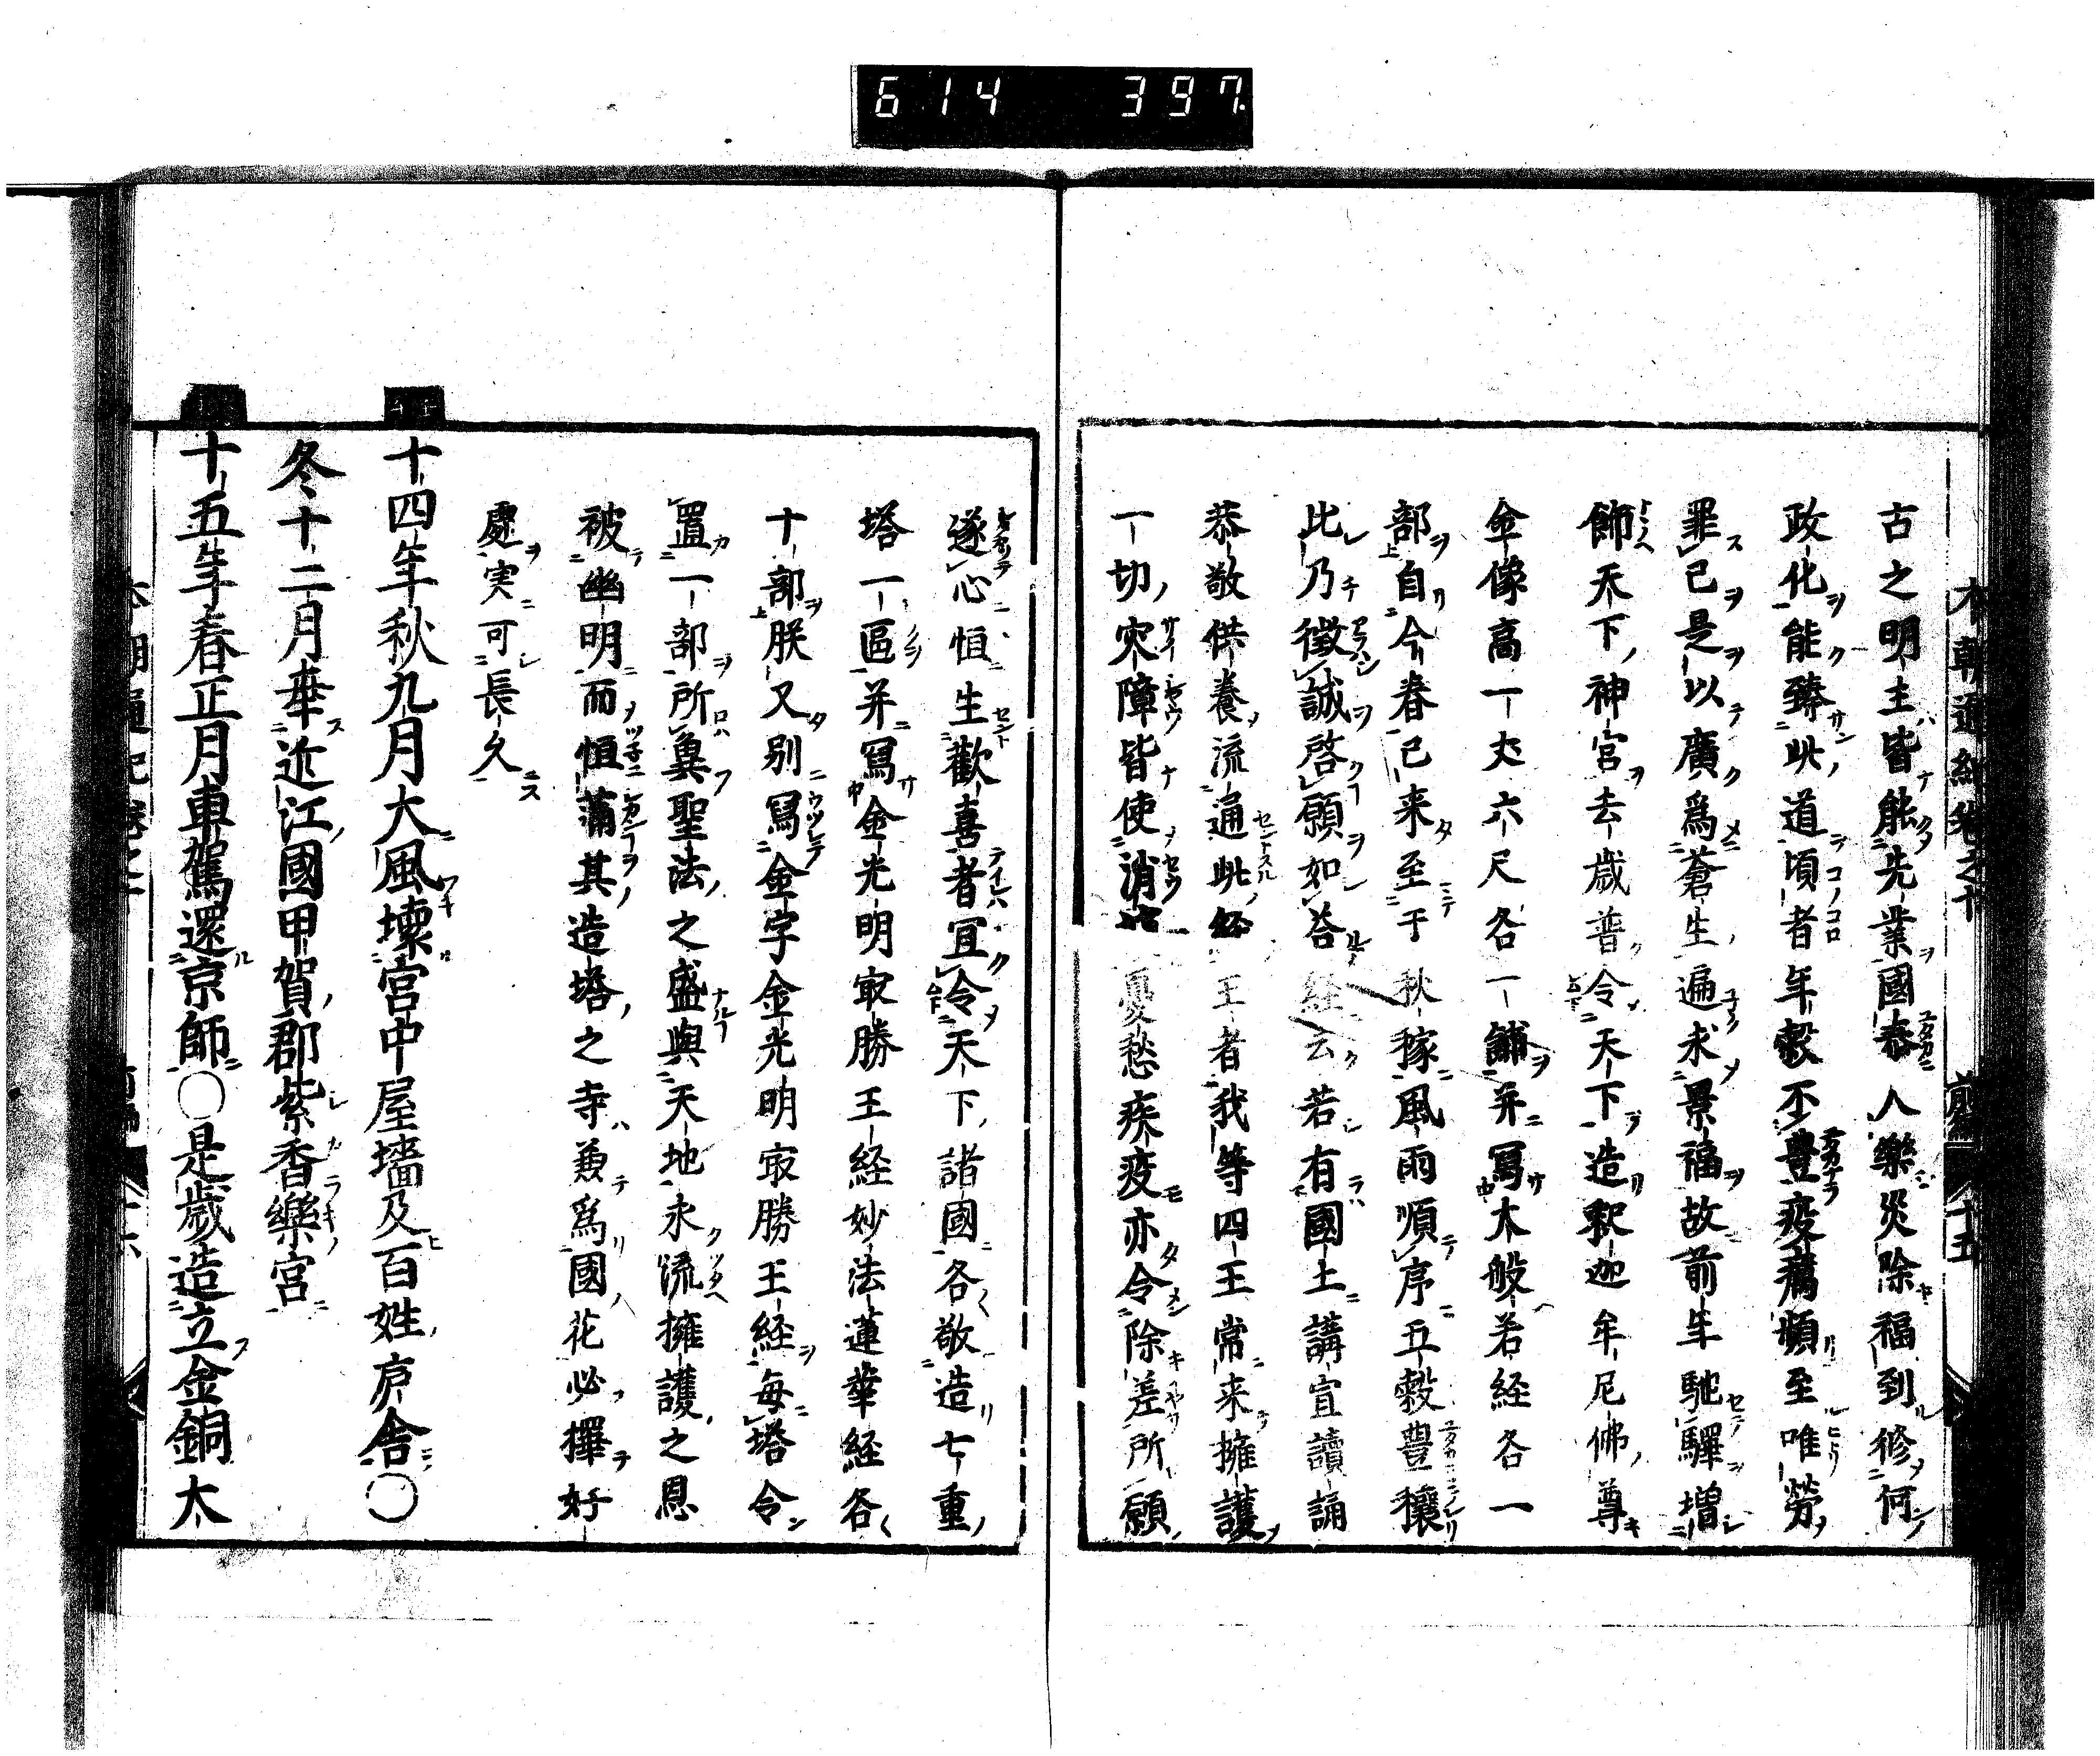 614 397
本朝通紀卷之十 前編 十五
古之明主皆能先業國泰人樂災除福到修何
政化能臻此道頃者年穀不豊疫癘頻至唯勞
罪己是以廣爲蒼生遍求景福故前年馳驛増
飾天下神宮去歳普令天下造釈迦牟尼佛尊
金像高一丈六尺各一鋪并冩大般若経各一
部自今春已来至于秋稼風雨順序五穀豊穰
此乃徴誠啓願如荅経云若有國土講宣讀誦
恭敬供養流通此経王者我等四王常来擁護
一切灾障皆使消
憂愁疾疫亦令除差所願
遂心恒生歡喜者冝令天下諸國各敬造七重
塔一區并冩金光明㝡勝王経妙法蓮華経各
十部朕又别冩金字金光明㝡勝王経毎塔令
置一部所兾聖法之盛與天地永流擁護之恩
被幽明而恒満其造塔之寺兼爲國花必擇好
處実可長久
十四年秋九月大風壞宮中屋墻及百姓庐舎〇
冬十二月幸近江國甲賀郡紫香樂宮
十五年春正月車駕還京師〇是歳造立金銅大